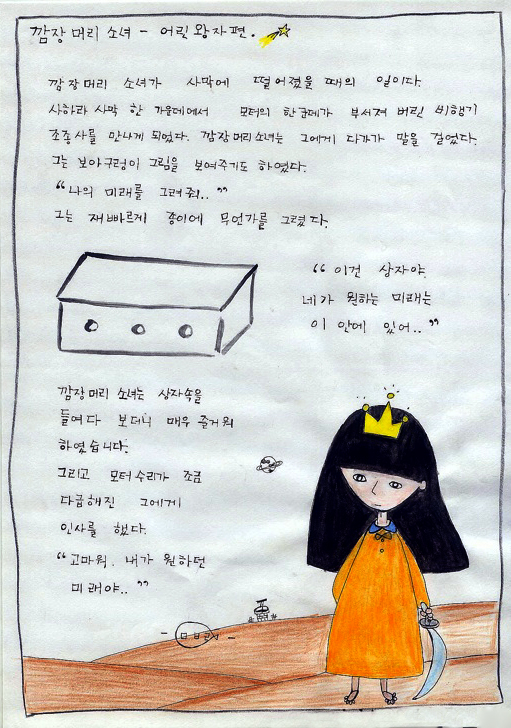 깜장 머리 소녀 - 어린 왕자편.
깜장 머리 소녀가 사막에 떨어졌을 때의 일이다.
사하라 사막 한 가운데에서 모터의 한 군데가 부서져 버린 비행기
조종사를 만나게 되었다. 깜장 머리소녀는 그에게 다가가 말을 걸었다.
그는 보아구렁이 그림을 보여주기도 하였다.
“나의 미래를 그려줘..”
그는 재빠르게 종이에 무언가를 그렸다.
“이건 상자야.
네가 원하는 미래는
이 안에 있어..”
깜장 머리 소녀는 상자속을
들여다 보더니 매우 즐거워
하였습니다.
그리고 모터수리가 조금
다급해진 그에게
인사를 했다.
“고마워. 내가 원하던
미래야..”